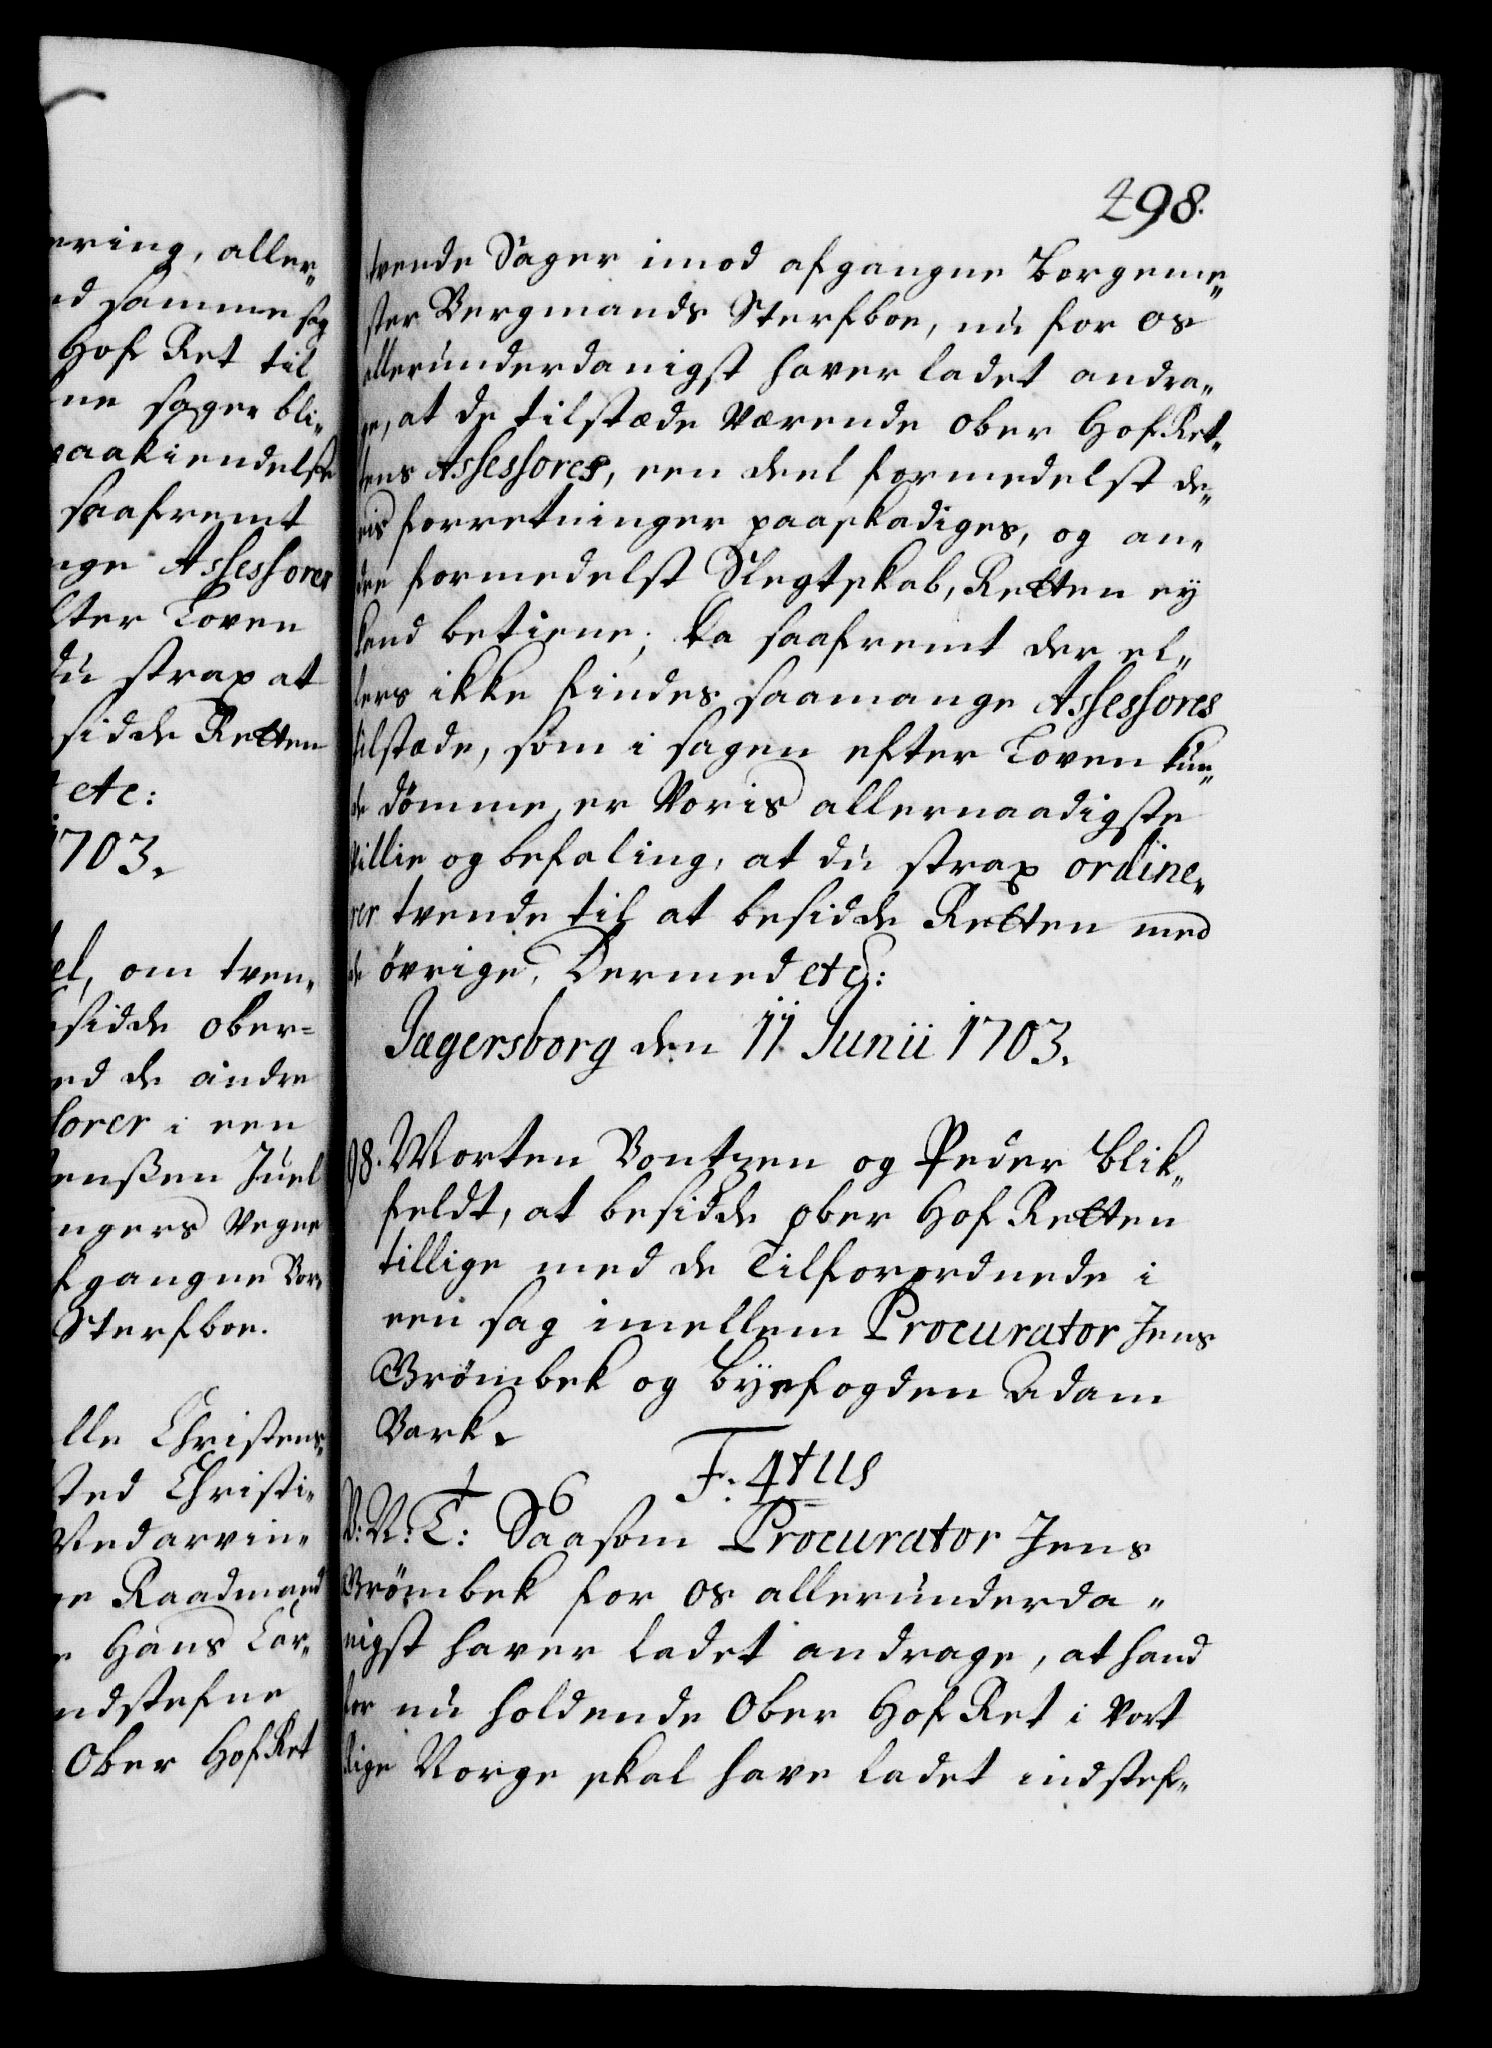 ering, aller„
ed samme sag
Hof Ret til
ne sager bli„
paakiendelse
saafremt
nge Assessorer
fter Loven
du strax at
sidde Retten
etc:
1703.
el, om tven„
sidde ober=
ed de andre
sorer i een
ensen Juel
ngers Vegne
fgangne Bor„
Sterfboe.
lle Christens„
sted Christi„
Medarvin„
ge Raadmand
e Hans Lar„
ndstefne
Ober Hof Ret
498.
tvende Sager imod afgangne Borgeme„
ster Bergmands Sterfboe, nu for os
allerunderdanigst haver ladet andra„
ge, at de tilstæde Værende ober Hof Ret„
tens Assessorer, een deel formedelst de„
ris forretninger paaskadiges, og an„
dre formedelst Slegtskab, Retten ey
kand betiene; Da saafremt der el„
lers ikke findes saamange Assessores
tilstæde, som i sagen efter Loven kun„
de dømme, er Voris allernaadigste
Villie og befaling, at du strax ordine„
rer tvende til at besidde Retten med
de øvrige, Dermed etc:
Jægersborg den 11 Junii 1703.
98. Morten Bontzen og Peder Blik„
feldt, at besidde ober Hof Retten
tillige med de Tilforordnede i
een sag imellem Procurator Jens
Brømbek og byefogden Adam
Bark.
F. 4tus
V: N: T: Saasom Procurator Jens
Brømbek for os allerunderda„
nigst haver ladet andrage, at hand
for nu holdende Ober Hof Ret i Vort
Rige Norge skal have ladet indstef„